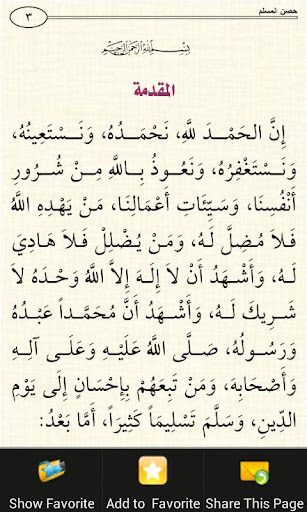 حصن المسلم
٣
بِسْمِ اللَّهِ الرَّحْمَنِ الرَّحِيمِ
المقدمة
إِنَّ الحَمْـدَ للَّهِ، نَحْمَدُهُ، وَنَـسْتَعِينُهُ،
وَنَـسْتَغْفِرُهُ، وَنَعُـوذُ بِـاللَّهِ مِـنْ شُـرُورِ
أَنْفُسِنَا، وَسَيِّئَاتِ أَعْمَالِنَا، مَنْ يَهْدِهِ اللَّهُ
فَلاَ مُضِلَّ لَـهُ، وَمَـنْ يُـضْلِلْ فَـلاَ هَـادِيَ
لَـهُ، وَأَشْـهَدُ أَنْ لاَ إِلَـهَ إِلاَّ اللَّهُ وَحْـدَهُ لاَ
شَـرِيكَ لَـهُ، وَأَشْـهَدُ أَنَّ مُحَمَّـداً عَبْـدُهُ
وَرَسُـولُهُ، صَـلَّى اللَّهُ عَلَيْـهِ وَعَلَـى آلِـهِ
وَأَصْحَابِهِ، وَمَنْ تَبِعَهُمْ بِإِحْسَانٍ إِلَى يَوْمِ
الدِّينِ، وَسَلَّمَ تَسْلِيمَاً كَثِيرَاً، أَمَّا بَعْدُ:
Show Favorite Add to Favorite Share This Page